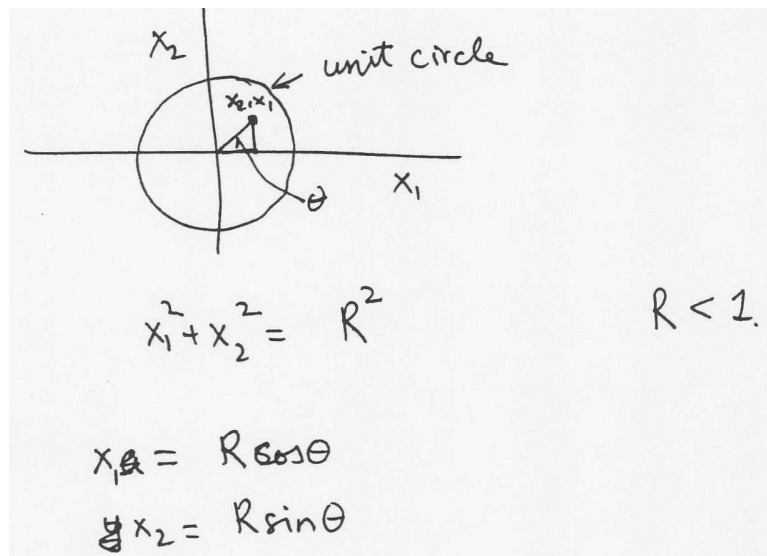 x₂
unit circle
x₂,x₁
x₁
θ
x₁² + x₂² = R² R < 1.
x₁ = R cosθ
x₂ = R sinθ